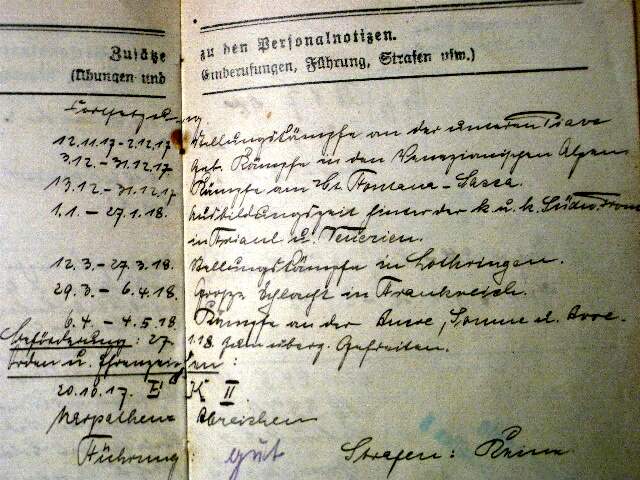 Zusätze zu den Personalnotizen.
(Übungen und Einberufungen, Führung, Strafen usw.)
Fortsetzung
12.11.17-2.12.17 Stellungskämpfe an der unteren Piave
3.12.-31.12.17 Geb. Kämpfe in den Venezianischen Alpen
13.12.-31.12.17 Kämpfe am Mt. Fontana-Secca.
1.1.-27.1.18. Ausbildungszeit hinter der k. u. k. Südw. Front
in Friaul u. Venezien.
12.3.-27.3.18. Stellungskämpfe in Lothringen.
29.3.-6.4.18. Große Schlacht in Frankreich.
6.4.-4.5.18. Kämpfe an der Avre, Somme
Beförderung: 27.1.18. zum überz. Gefreiten.
Orden u. Ehrenzeichen:
20.10.17. E K II
Karpathen Abzeichen
Führung: gut Strafen: Keine